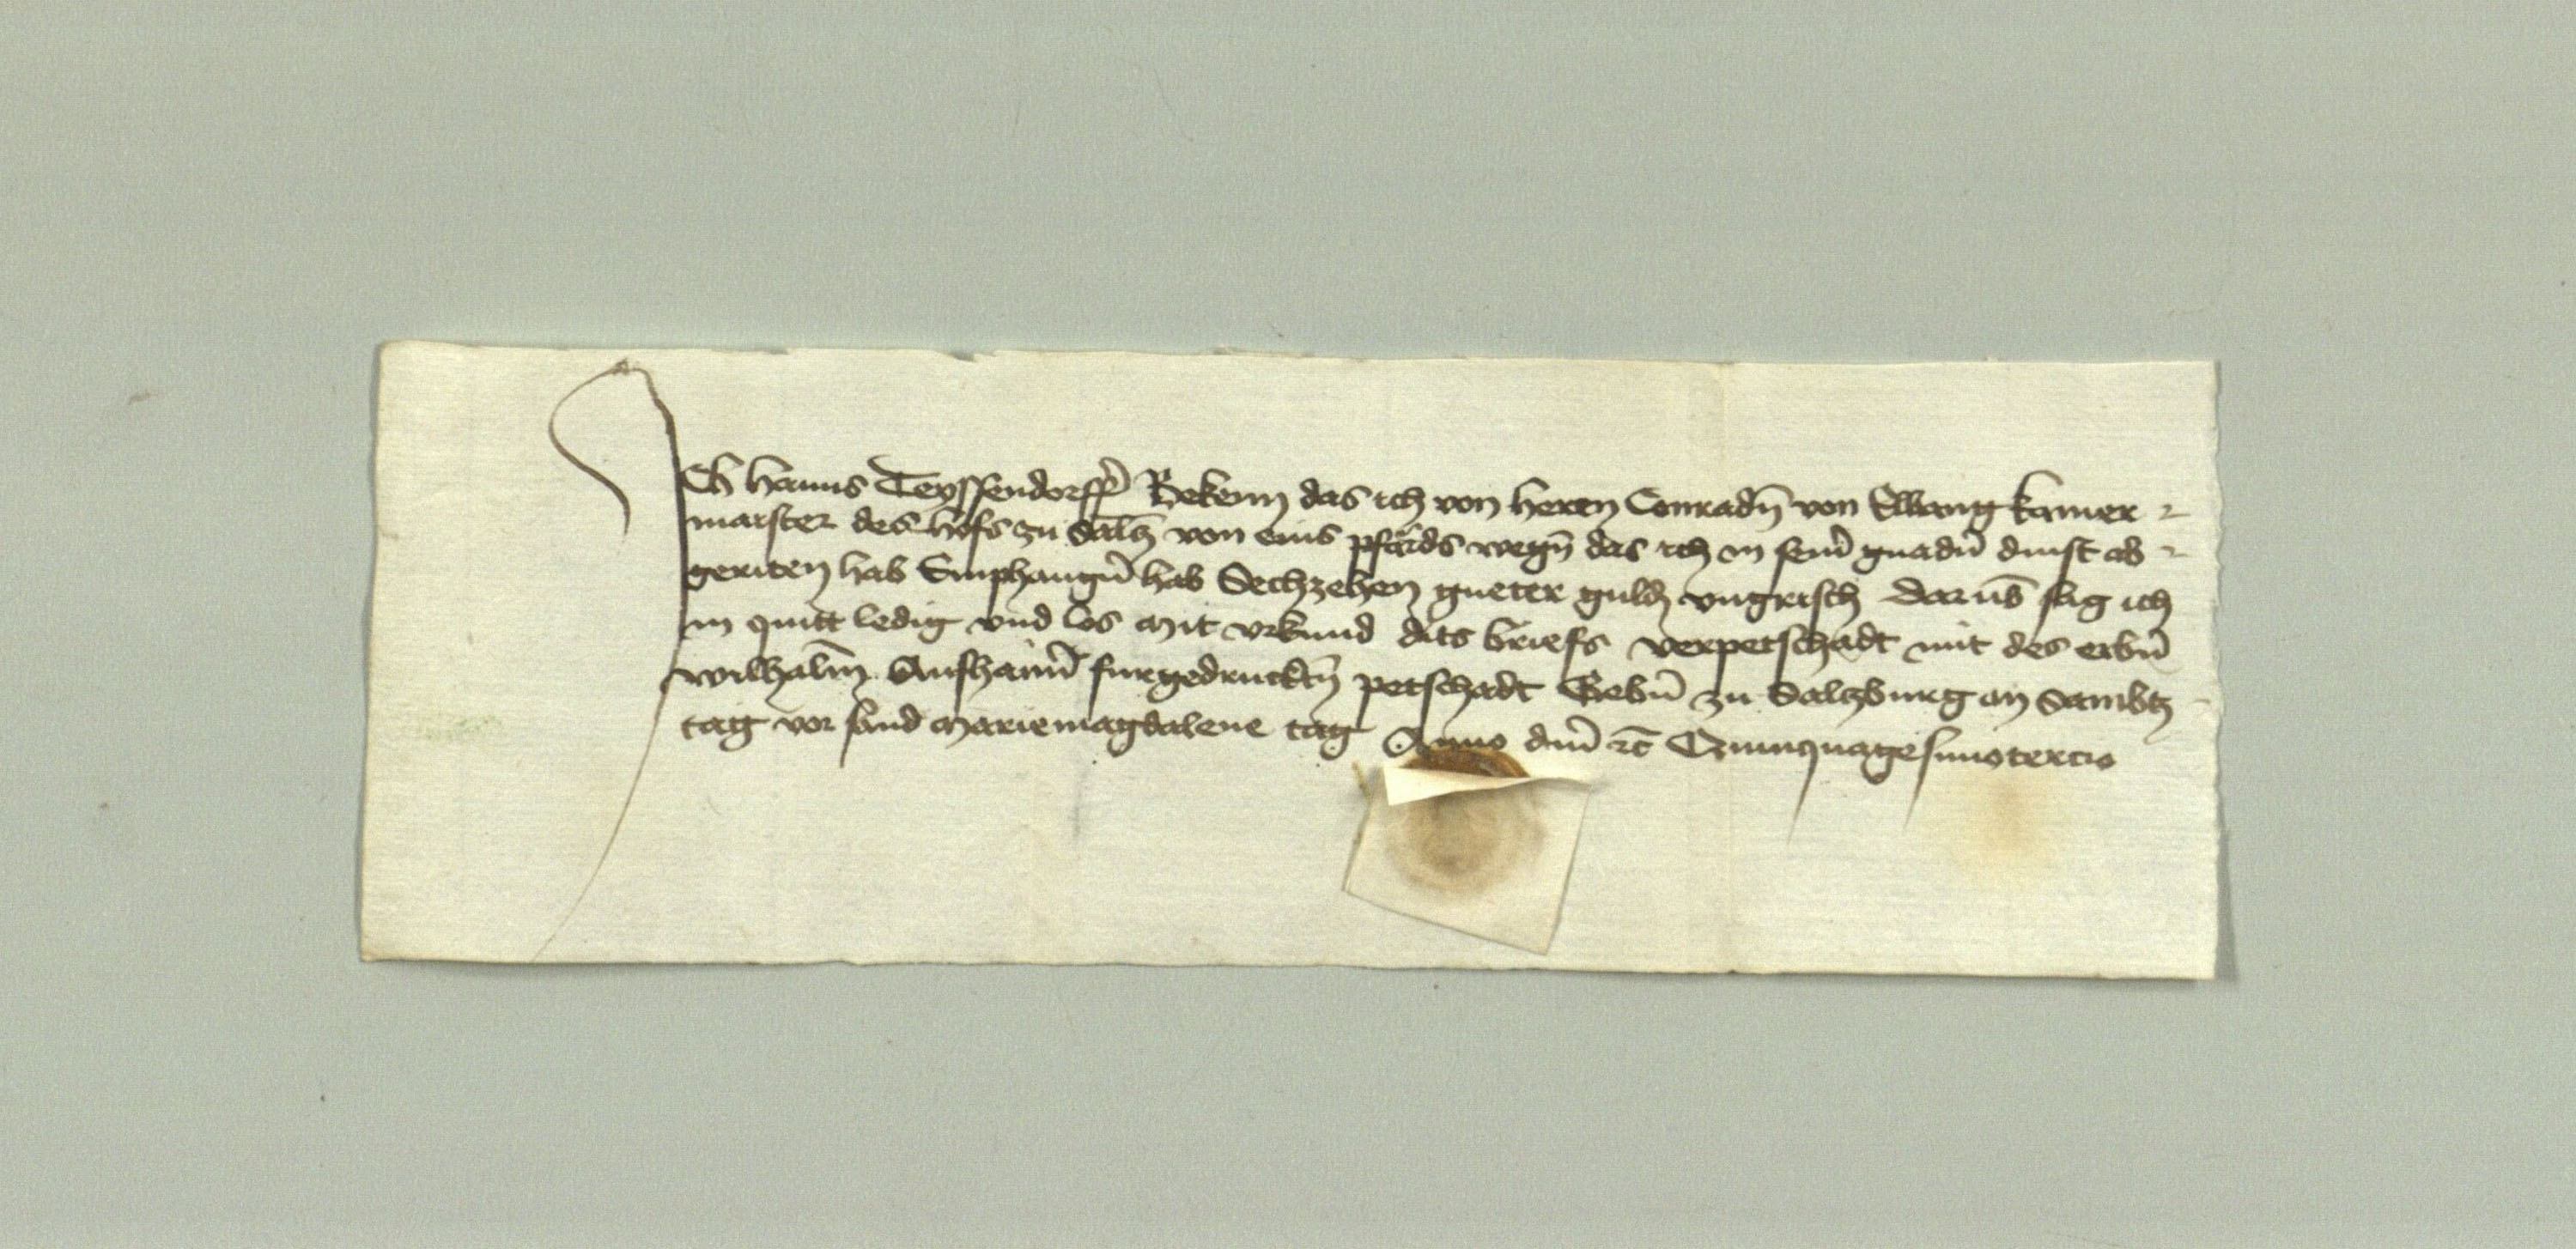 Ich Hanns Teyssendorff̄ Bekenn das ich von heren Conradn̄ von Ellwang kamer
maister des hofs zu Salcz von eins pfards wegn̄ das ich in sein̄ gnadn̄ dinst ab
geriten hab Emphangn̄ hab Sechzehen gueter guldn̄ vngrisch darūb sag ich
in quitt ledig vnd los mit vrkund dits briefs verpetschadt mit des erbn̄
wilhalm̄ furgedrucktn̄ petschadt Gebn̄ zu Salczburg an Sambtz
tag vor sand mariemagdalene tag Anno dn̄i ꝛc̄ Quinquagesimotercio